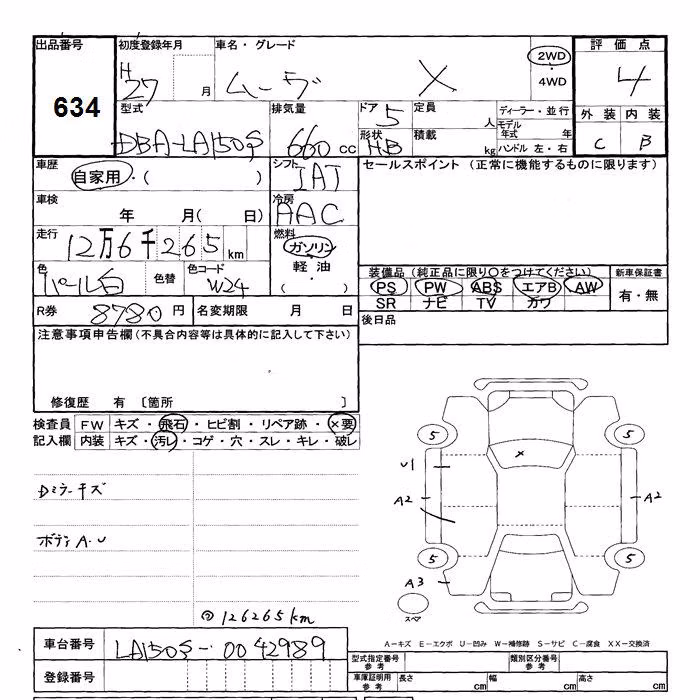 出品番号 初度登録年月 車名・グレード 評価点
634 H27 月 ムーヴ X 2WD・4WD 4
型式 排気量 ドア 定員 ディーラー・並行 外装 内装
DBA-LA150S 660 cc 5 人 モデル年式 年 C B
形状 積載 ハンドル 左・右
HB kg
車歴 自家用・( ) シフト IAT セールスポイント (正常に機能するものに限ります)
車検 年 月( 日) 冷房 AAC
走行 12万6千265km 燃料 ガソリン・軽油・( )
色 パール白 色替 色コード W24 装備品 (純正品に限り○をつけてください) 新車保証書
PS PW ABS エアB AW 有・無
SR ナビ TV カワ
R券 8780円 名変期限 月 日 後日品
注意事項申告欄 (不具合内容等は具体的に記入して下さい)
修復歴 有 〔箇所 〕
検査員 FW キズ・飛石・ヒビ割・リペア跡・×要
記入欄 内装 キズ・汚レ・コゲ・穴・スレ・キレ・破レ
5 5
×
U1
Dミラーキズ
A2 A2
ボディA.U
5 5
A3
スペア
126265km
A-キズ E-エクボ U-凹み W-補修跡 S-サビ C-腐食 XX-交換済
車台番号 LA150S-0042989
型式指定番号 参考 類別区分番号 参考
登録番号 車庫証明用 参考 長さ cm 幅 cm 高さ cm